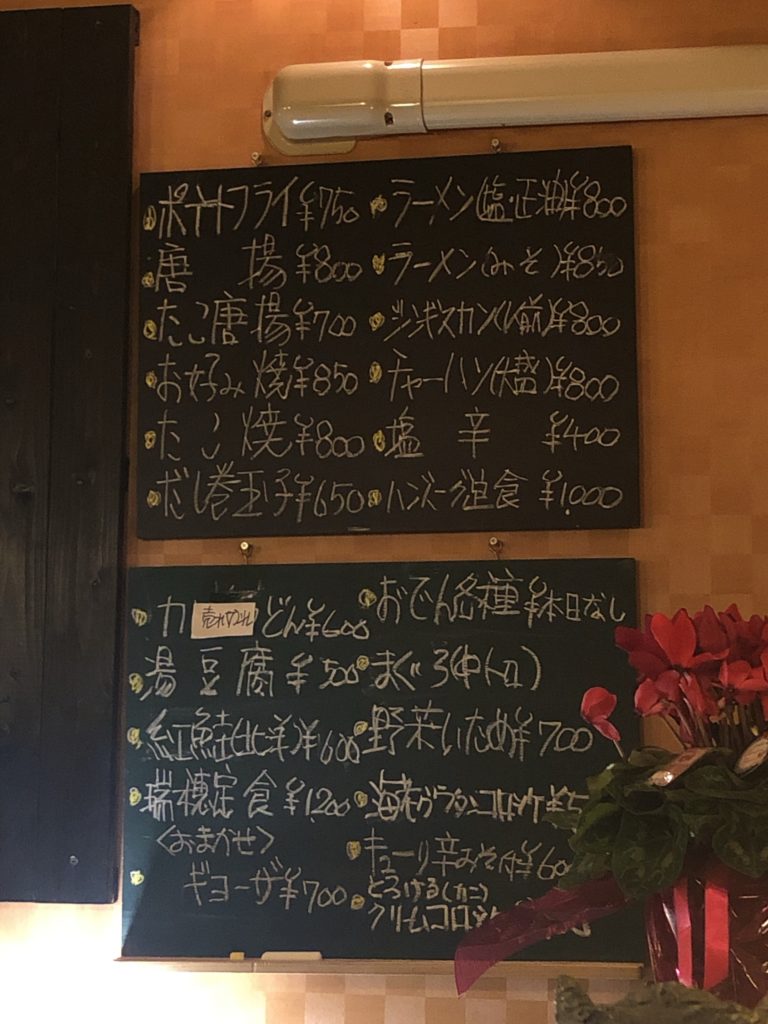 ポテトフライ ¥750
唐 揚 ¥800
たこ唐揚 ¥700
お好み焼 ¥850
たこ焼 ¥800
だし巻玉子 ¥650
ラーメン(塩・正油) ¥800
ラーメン(みそ) ¥850
ジンギスカン(1人前) ¥800
チャーハン(大盛) ¥800
塩 辛 ¥400
ハンバーグ定食 ¥1,000
カ 売れ切れ どん ¥600
湯豆腐 ¥500
紅鮭(北洋) ¥600
瑞穂定食 ¥1,200
<おまかせ>
ギョーザ ¥700
おでん各種 ¥本日なし
まぐろ(中トロ)
野菜いため ¥700
海老グラタンコロッケ ¥5
キューリ辛みそ付 ¥600
とろける(カニ)
クリームコロッケ